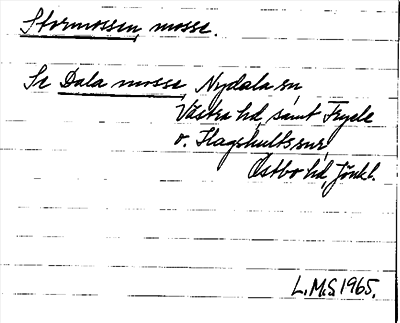 Stormossen, mosse.
Se Dala mosse, Nydala sn,
Västra hd, samt Fryele
o. Hagshults snr,
Östbo hd, Jönkl.
L.M.S 1965.